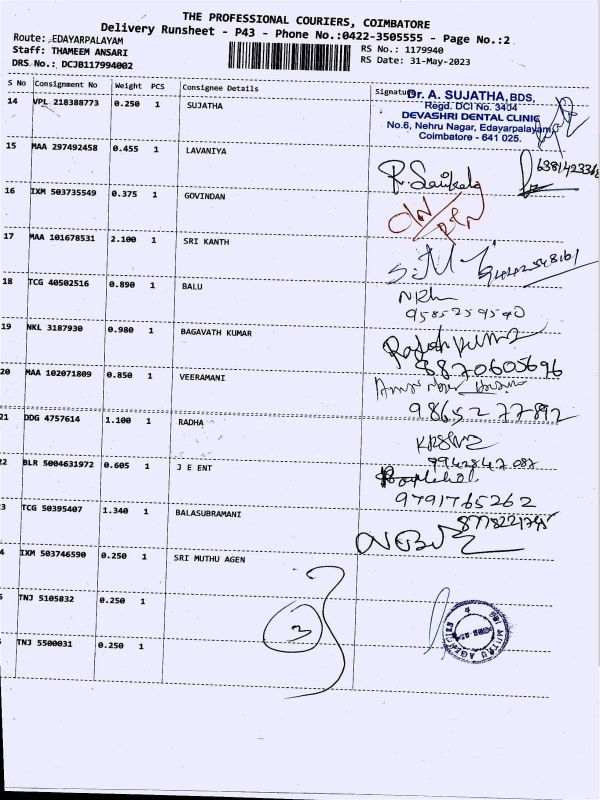 THE PROFESSIONAL COURIERS, COIMBATORE
Delivery Runsheet - P43 - Phone No.:0422-3505555 - Page No.:2
Route: EDAYARPALAYAM
Staff: THAMEEM ANSARI
DRS No.: DCJB117994002
RS No.: 1179940
RS Date: 31-May-2023
S No Consignment No Weight PCS Consignee Details Signature
14 VPL 218388773 0.250 1 SUJATHA
Dr. A. SUJATHA, BDS,
Regd. DCI No. 3404
DEVASHRI DENTAL CLINIC
No.6, Nehru Nagar, Edayarpalayam
Coimbatore - 641 025.
15 MAA 297492458 0.455 1 LAVANIYA
16 IXM 503735549 0.375 1 GOVINDAN
17 MAA 101678531 2.100 1 SRI KANTH
18 TCG 40502516 0.890 1 BALU
9585259540
19 NKL 3187930 0.980 1 BAGAVATH KUMAR
8870605696
20 MAA 102071809 0.850 1 VEERAMANI
9865277892
21 DDG 4757614 1.100 1 RADHA
9942847087
22 BLR 5004631972 0.605 1 J E ENT
9791765262
3 TCG 50395407 1.340 1 BALASUBRAMANI
4 IXM 503746590 0.250 1 SRI MUTHU AGEN
5 TNJ 5105832 0.250 1
TNJ 5500031 0.250 1
3